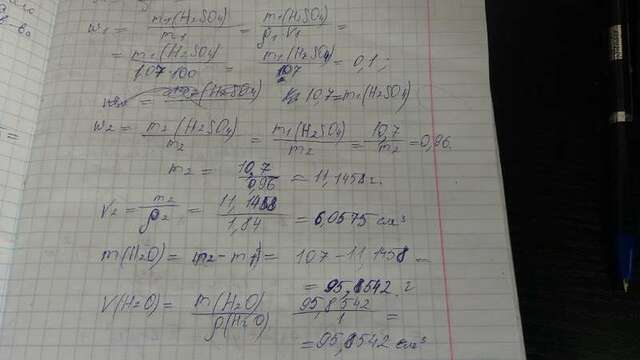 w₁ = m₁(H₂SO₄)/m₁ = m₁(H₂SO₄)/ρ₁·V₁ =
= m₁(H₂SO₄)/1.07·100 = m₁(H₂SO₄)/107 = 0,1;
10,7 = m₁(H₂SO₄)
w₂ = m₂(H₂SO₄)/m₂ = m₁(H₂SO₄)/m₂ = 10,7/m₂ = 0,96.
m₂ = 10,7/0,96 = 11,1458 г.
V₂ = m₂/ρ₂ = 11,1458/1,84 = 6,0575 см³
m(H₂O) = m₂ - m₁ = 107 - 11,1458 =
= 95,8542 г
V(H₂O) = m(H₂O)/ρ(H₂O) 95,8542/1 =
= 95,8542 см³